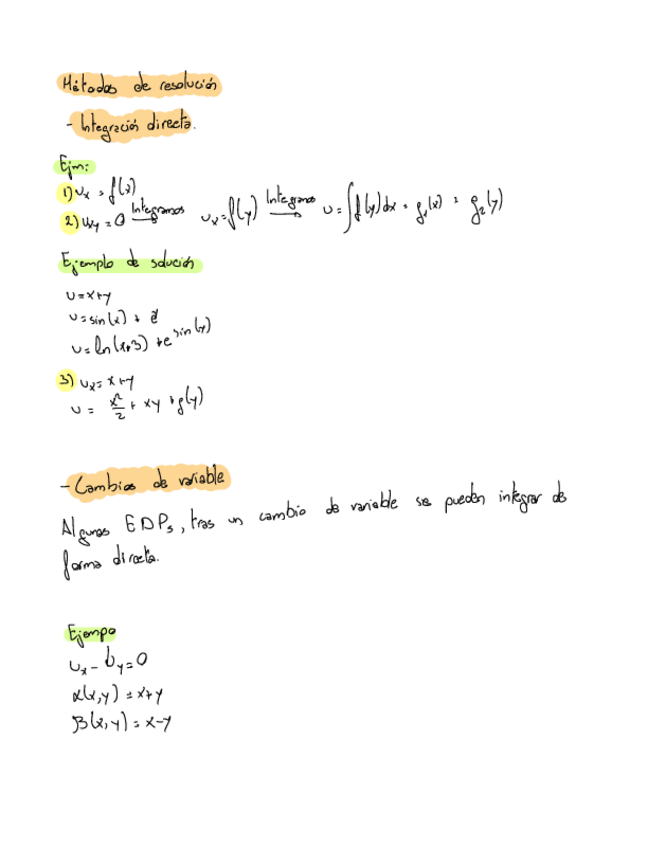 Métodos de resolución
- Integración directa.
Ejm:
1) Ux = f(x)
2) Uxy = 0 Integramos → Ux = f(y) Integramos → U = ∫f(y)dx = g₁(x) + g₂(y)
Ejemplo de solución
U = x+y
U = sin(x) +
U = ln(x+3) + e^sin(y)
3) Ux = x+y
U = x²/2 + xy + g(y)
- Cambios de variable
Algunas EDPs, tras un cambio de variable se pueden integrar de
forma directa.
Ejempo
Ux - Uy = 0
α(x,y) = x+y
β(x,y) = x-y